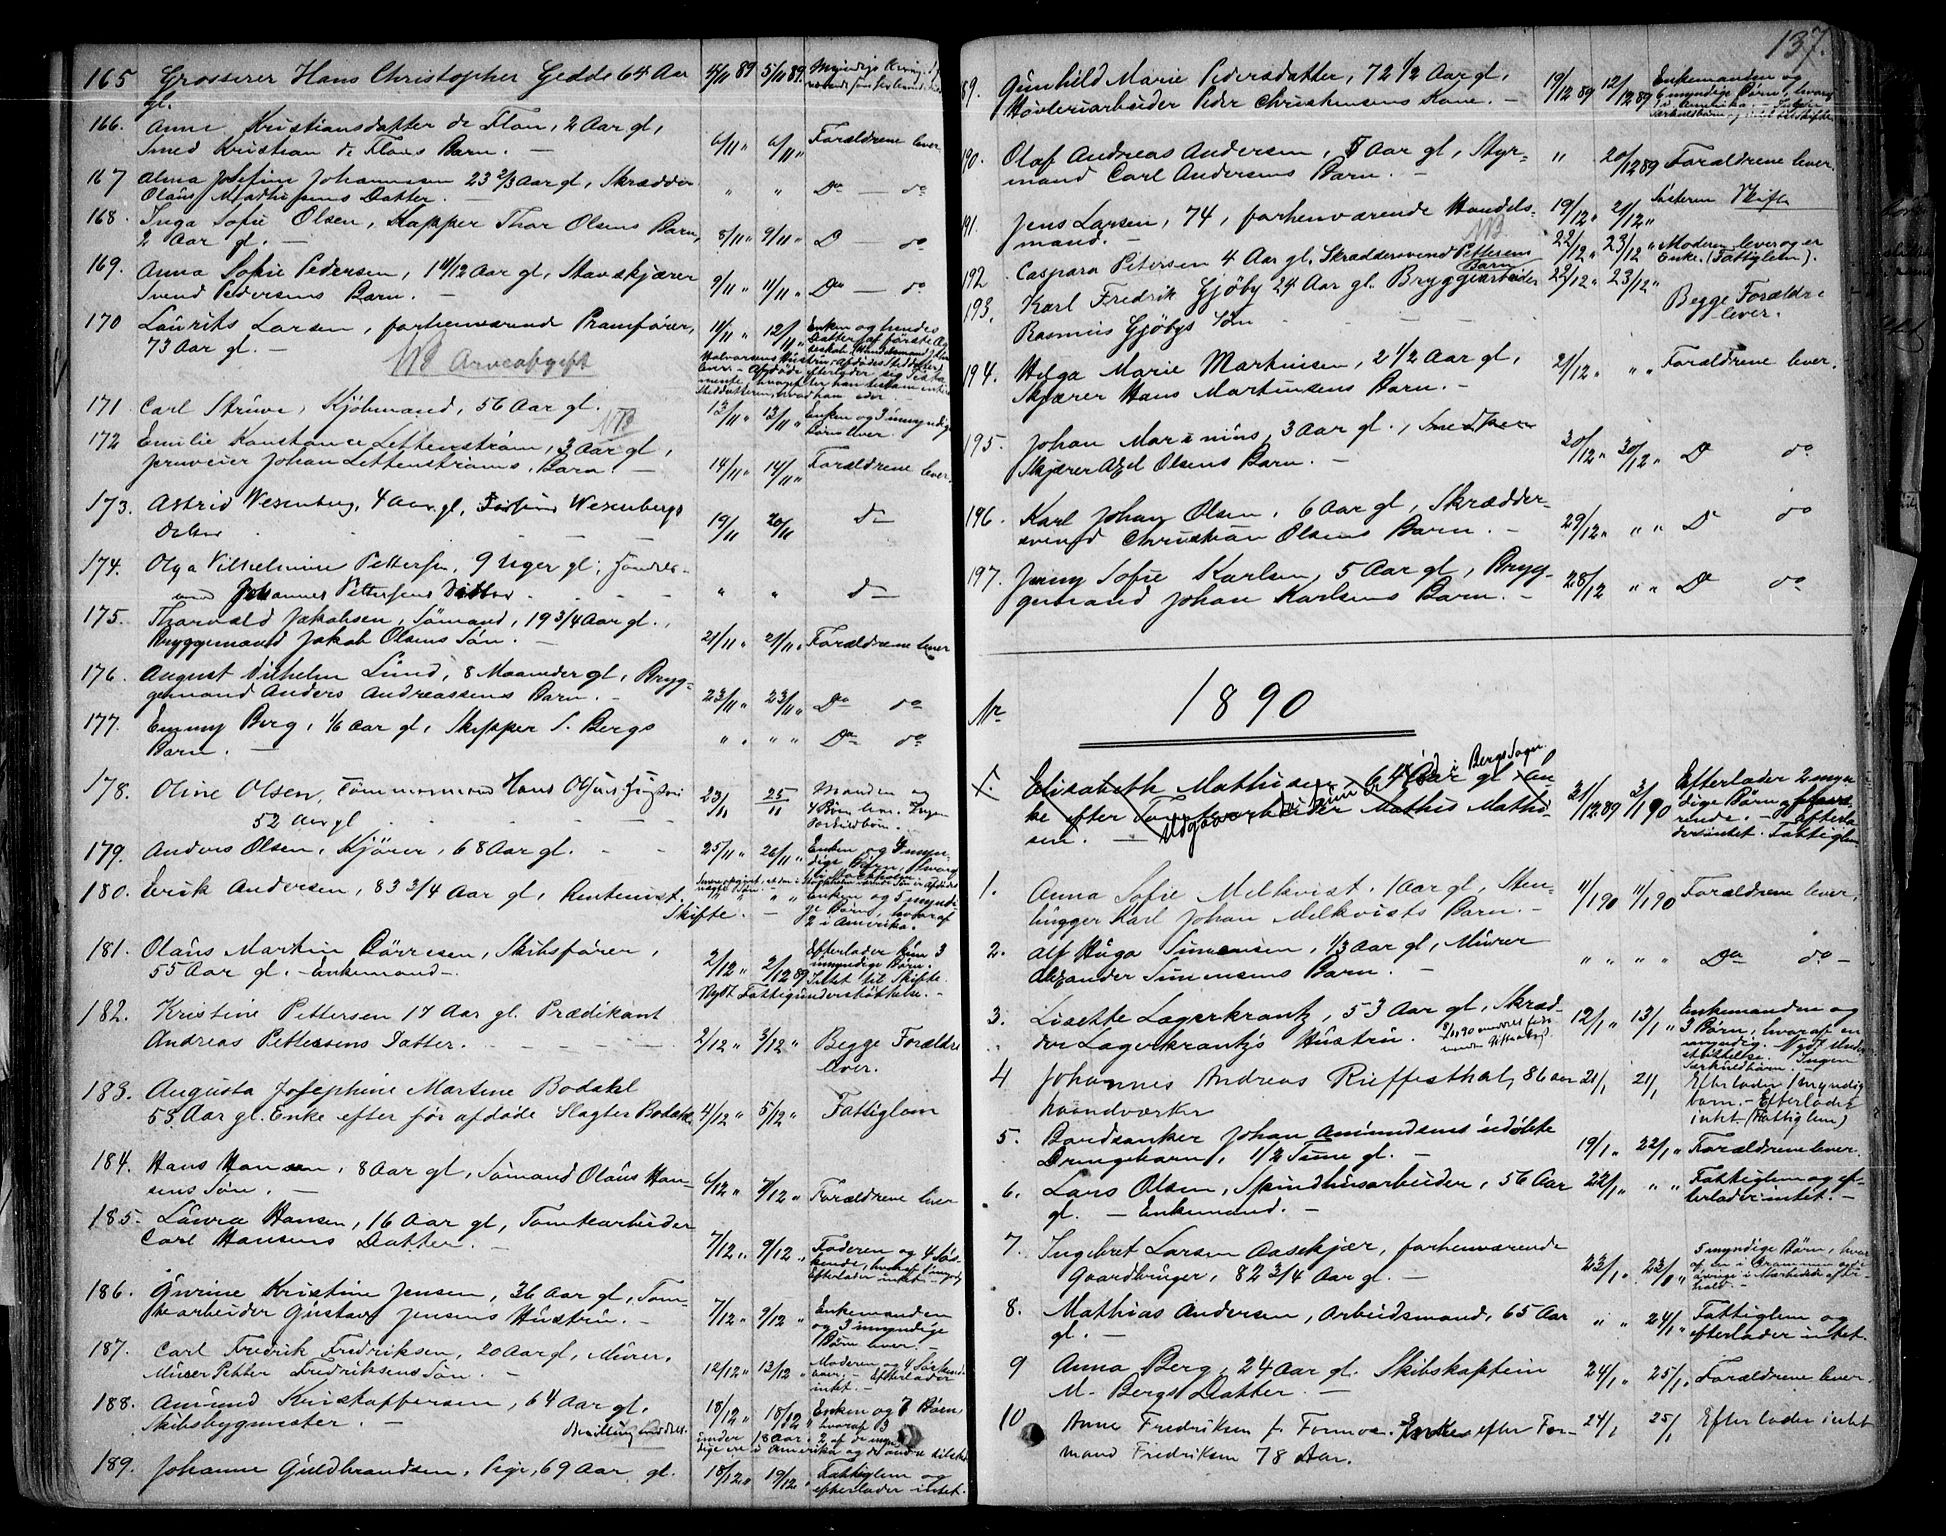 165 Grosserer Hans Christopher Gedde 64 Aar 4/11 89 5/11 89
gl.
166. Anne Kristiansdatter de Flon, 2 Aar gl,
Smed Kristian de Flons Barn. — 6/11 " 6/11 " Forældrene lever
167 Alma Josefine Johannesen 23 2/3 Aar gl, Skrædder
Olaus Mathisens Datter. — " " Do — do
168. Inga Sofie Olsen, Kapper Thor Olsens Barn,
2 Aar gl. — 8/11 " 9/11 " D — do
169. Anna Sofie Pedersen, 1 4/12 Aar gl,
Svend Pedersens Barn. — 9/11 " 11/11 " Do — do
170 Laurits Larsen, forhenværend Pramfører, 11/11 " 12/11 " Enken og hendes
73 Aar gl. — Datter af første
NB Arveafgift
171. Carl Struve, Kjøbmand, 56 Aar gl. 13/11 " 13/11 " Enken og 3 umyndige
Børn lever.
NB
172 Emilie Konstance Lettenstrøm, 3 Aar gl,
Johan Lettenstrøms Barn. — 14/11 " 14/11 " Forældrene lever
173. Astrid Wesenberg, 4 Aar gl, Wesenbergs
Datter 19/11 20/11 do
174. Olga Vilhelmine Pettersen, 9 Uger gl,
Johannes Pettersens Datter. " " do
175. Thorvald Jakobsen, Sømand, 19 3/4 Aar gl.,
Bryggemand Jakob Olsens Søn. — 21/11 " 21/11 " Forældrene lever
176. August Vilhelm Lund, 8 Maaneder gl, Bryg-
gemand Anders Andreassens Barn. — 23/11 " 23/11 " Do do
177. Emmy Berg, 1/6 Aar gl, Skipper S. Bergs
Barn. — " " " " Do do
178. Oline Olsen, Tømmermand Hans Olsens Hustru 23/11 25/11 Manden og
52 Aar gl 4 Børn lever. Ingen
Særkuldbørn.
179. Anders Olsen, Kjører, 68 Aar gl. — 25/11 " 26/11 " Enken og
180. Erik Andersen, 83 3/4 Aar gl, Rentenist. " " Enken og 5 myndi-
Skifte. — ge Børn, hvoraf
2 i Amerika.
181. Olaus Martin Dørresen, Skibsfører, Efterlader kun 3
55 Aar gl. — Enkemand —. 2/12 " 2/12 89 umyndige Børn.
Intet til Skifte.
Nydt Fattigunderstøttelse. —
182. Kristine Pettersen 17 Aar gl. Prædikant
Andreas Pettersens Datter. 2/12 " 3/12 " Begge Forældre
lever.
183. Augusta Josephine Martine Bodahl
53 Aar gl. Enke efter før afdøde Slagter Bodahl 4/12 " 5/12 " Fattiglem
184. Hans Hansen, 8 Aar gl, Sømand Olaus Han-
sens Søn. — 6/12 " 7/12 " Forældrene lever
185. Laura Hansen, 16 Aar gl, Tomtearbeider
Carl Hansens Datter. — 7/12 " 9/12 " Faderen og 4 Søs-
kende, hvoraf 1 myndig
Efterlader intet —
186. Gurine Kristine Jensen, 36 Aar gl, Tom-
tearbeider Gustav Jensens Hustru. — 7/12 " 9/12 " Enkemanden
og 3 umyndige
Børn lever. —
187. Carl Fredrik Fredriksen, 20 Aar gl, Murer,
Murer Petter Fredriksens Søn. — 12/12 " 13/12 " Moderen og 4 Søskende
lever. — Efterlader
intet. —
188. Amund Kristoffersen, 64 Aar gl, 18/12 " 18/12 " Enken og 7 Børn,
Skibsbygmester. — hvoraf 3
under 18 Aar. 2 af de myn-
dige ere i Amerika og de andre tilstede
189. Johanne Guldbrandsen, Pige, 69 Aar gl. 18/12 " 19/12 " Fattiglem og
efterlader intet.
137.
89. Gunhild Marie Pedersdatter, 72 1/2 Aar gl, 19/12 89 12/12 89 Enkemanden og
Høvleriarbeider Peder Christensens Kone. — 6 myndige Børn, hvoraf
i Amerika.
190. Olaf Andreas Andersen, 5 Aar gl, Styr- " 20/12 89 Forældrene lever.
mand Carl Andersens Barn. —
191. Jens Larsen, 74, forhenværende Handels- 19/12 " 21/12 " Søsteren Skifte
mand. — NB
192 Caspara Petersen 4 Aar gl. Skræddersvend Pettersens 22/12 " 23/12 " Moderen lever og er
Barn Enke. (Fattiglem).
193. Karl Fredrik Gjøby 24 Aar gl. Bryggearbeider 22/12 " 23/12 " Begge Forældre
Rasmus Gjøbys Søn lever.
194. Helga Marie Martinsen, 2 1/2 Aar gl, 21/12 " " " Forældrene lever.
Skjærer Hans Martinsens Barn. —
195. Johan Marinius, 3 Aar gl.,
Skjærer Axel Olsens Barn. — 30/12 " 30/12 " D do
196. Karl Johan Olsen, 6 Aar gl, Skrædder-
svend Christian Olsens Barn. — 29/12 " " " D do
197. Jenny Sofie Karlsen, 5 Aar gl, Bryg-
gemand Johan Karlsens Barn. — 28/12 " " D do
Nr 1890
1. Elisabeth Mathisen 64 Aar gl En- 31/12 89 3/1 90 Efterlader 2 myn-
ke efter Tomtearbeider Mathis Mathi- dige Børn
sen. — Udgaar, Fattiglem
1. Anna Sofie Melkvist, 1 Aar gl, Sten- 11/1 90 11/1 90 Forældrene lever.
hugger Karl Johan Melkvists Barn. —
2. Alf Hugo Simensen, 1/3 Aar gl, Murer
Alexander Simensens Barn. — " " " " Do do —
3. Lisette Lagerkrantz, 53 Aar gl, Skræd- 12/1 " 13/1 " Enkemanden og
der Lagerkrantz's Hustru. 3 Børn, hvoraf en
myndig. Nydt Under-
støttelse. Ingen
Særkuldbørn. —
4 Johannes Andreas Rieffesthal, 86 aar 21/1 21/1 Efterlader 1 myndig
haandværker barn. — Efterlader
intet (Fattiglem)
5. Baadsanker Johan Amundsens udøbte
Drengebarn, 1/2 Time gl. — 19/1 " 22/1 " Forældrene lever.
6. Lars Olsen, Spindhusarbeider, 56 Aar 22/1 " " " Fattiglem og ef-
gl. — Enkemand. — terlader intet. —
7. Ingebret Larsen Aasekjær, forhenværende 5 myndige Børn, hvor-
Gaardbruger, 82 3/4 Aar gl. — 23/1 " 23/1 " af en i Drammen og de
øvrige i
8. Mathias Andersen, Arbeidsmand, 65 Aar " " 24/1 " Fattiglem og
gl. — efterlader intet.
9 Anna Berg, 24 Aar gl. Skibskaptein 24/1 " 25/1 " Forældrene lever.
M. Bergs Datter. —
10 Anne Fredriksen f. Formoe. Enke efter For- 24/1 25/1 Efterlader intet
mand Fredriksen 78 Aar.